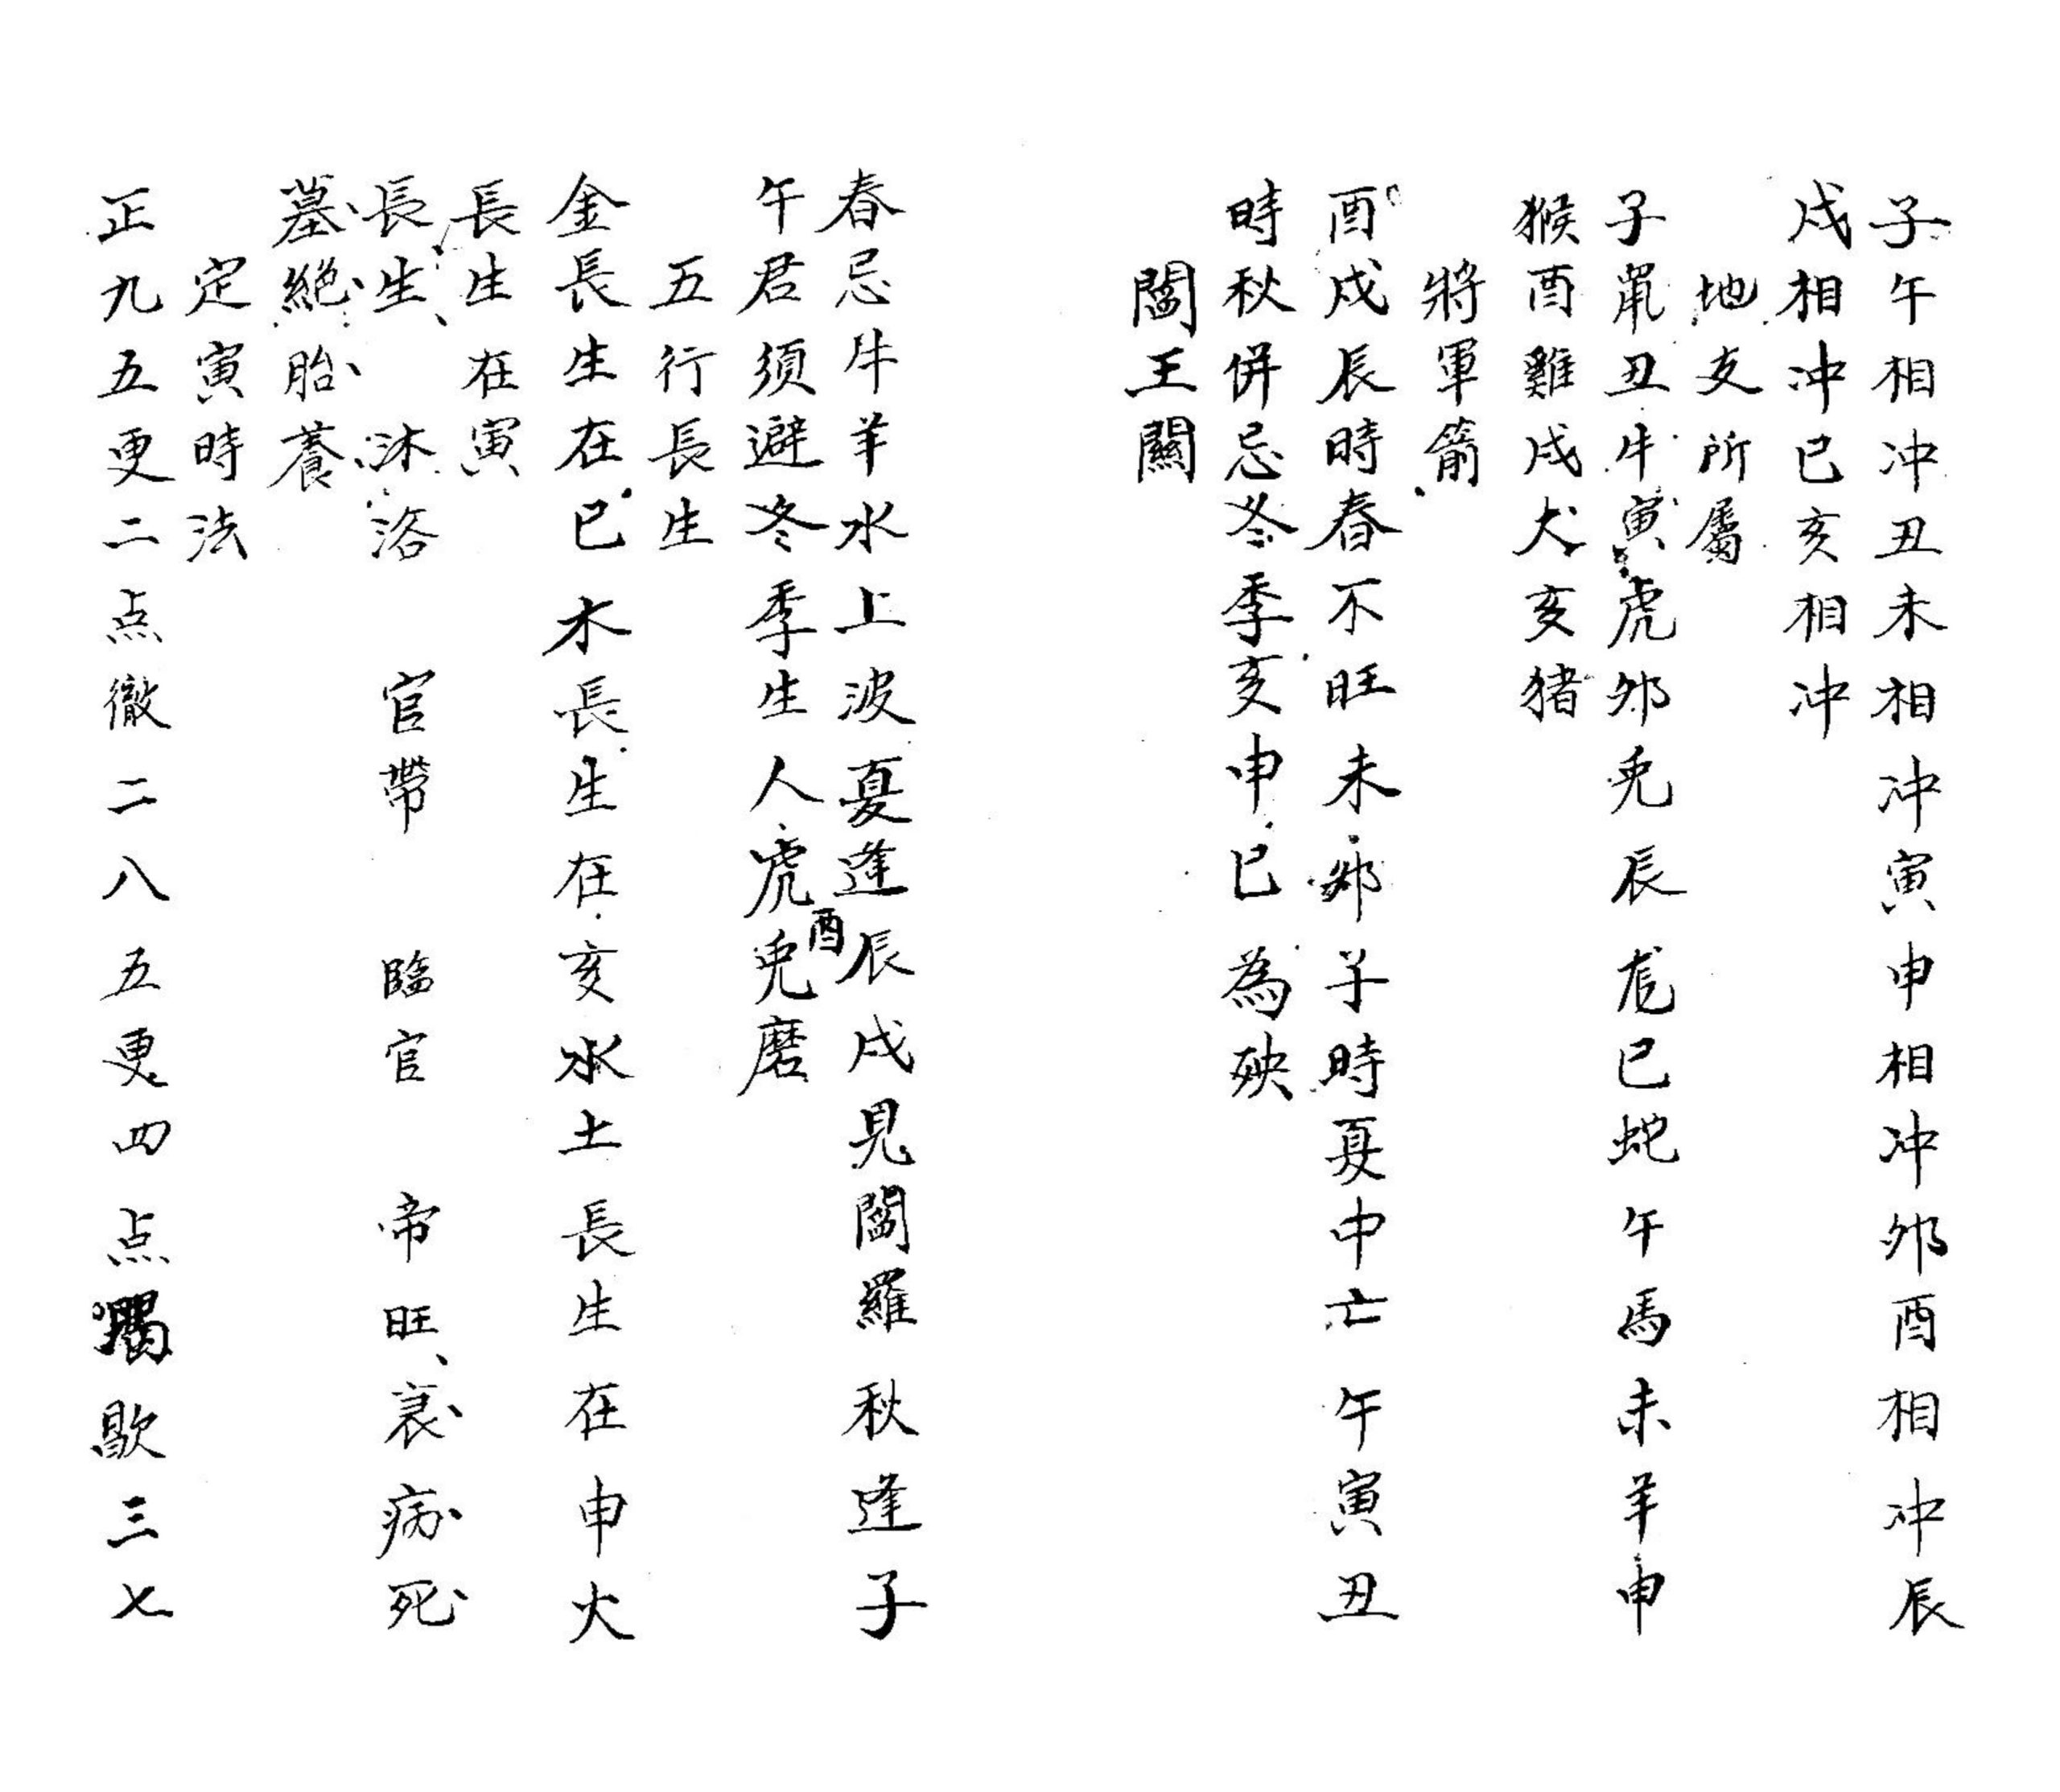 子午相冲丑未相冲寅申相冲卯酉相冲辰
戌相冲巳亥相冲
地支所屬
子鼠丑牛寅虎卯兎辰龙巳蛇午馬未羊申
猴酉雞戌犬亥猪
將軍箭
酉戌辰時春不旺未卯子時夏中亡午寅丑
時秋併忌冬季亥申巳為殃
閻王關
春忌牛羊水上波夏逢辰戌見閻羅秋逢子
午君須避冬季生人虎兎磨
酉
五行長生
金長生在巳木長生在亥水土長生在申火
長生在寅
長生 沐浴 官帶 臨官 帝旺衰病死
墓絕胎養
定寅時法
正九五更二点徹二八五更四点歇三七